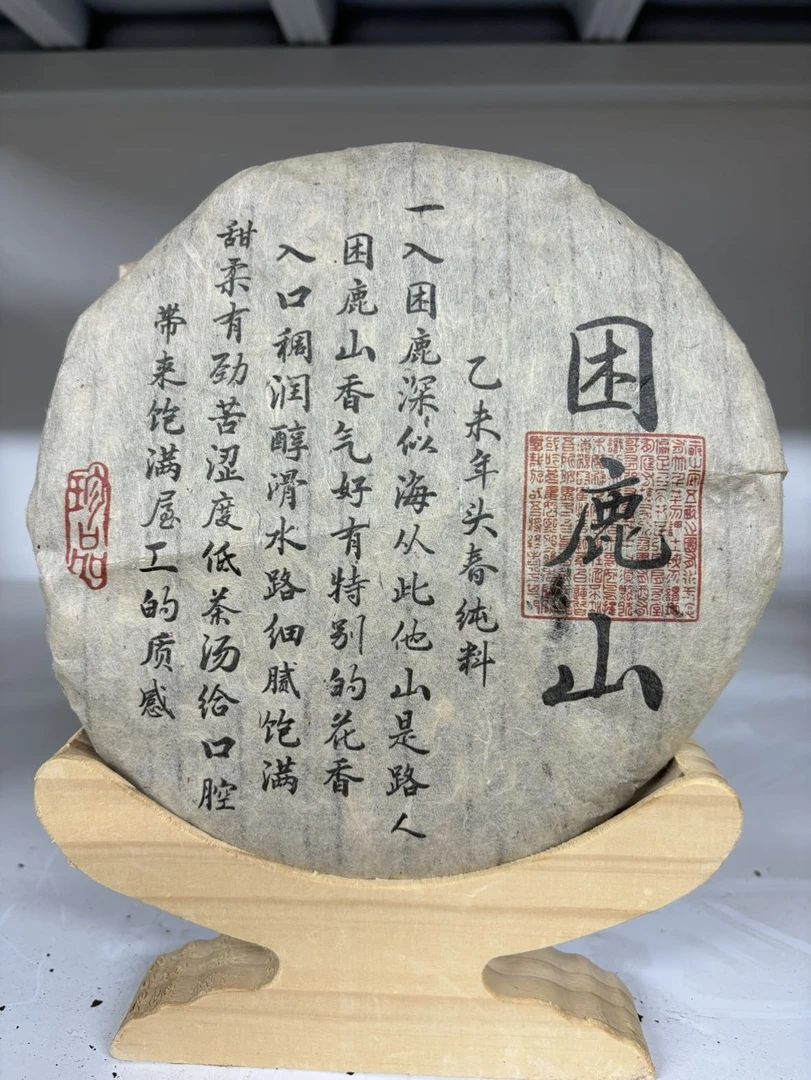 困鹿山
乙未年头春纯料
一入困鹿深似海从此他山是路人
困鹿山香气好有特别的花香
入口稠润醇滑水路细腻饱满
甜柔有劲苦涩度低茶汤给口腔
带来饱满屋工的质感
珍品